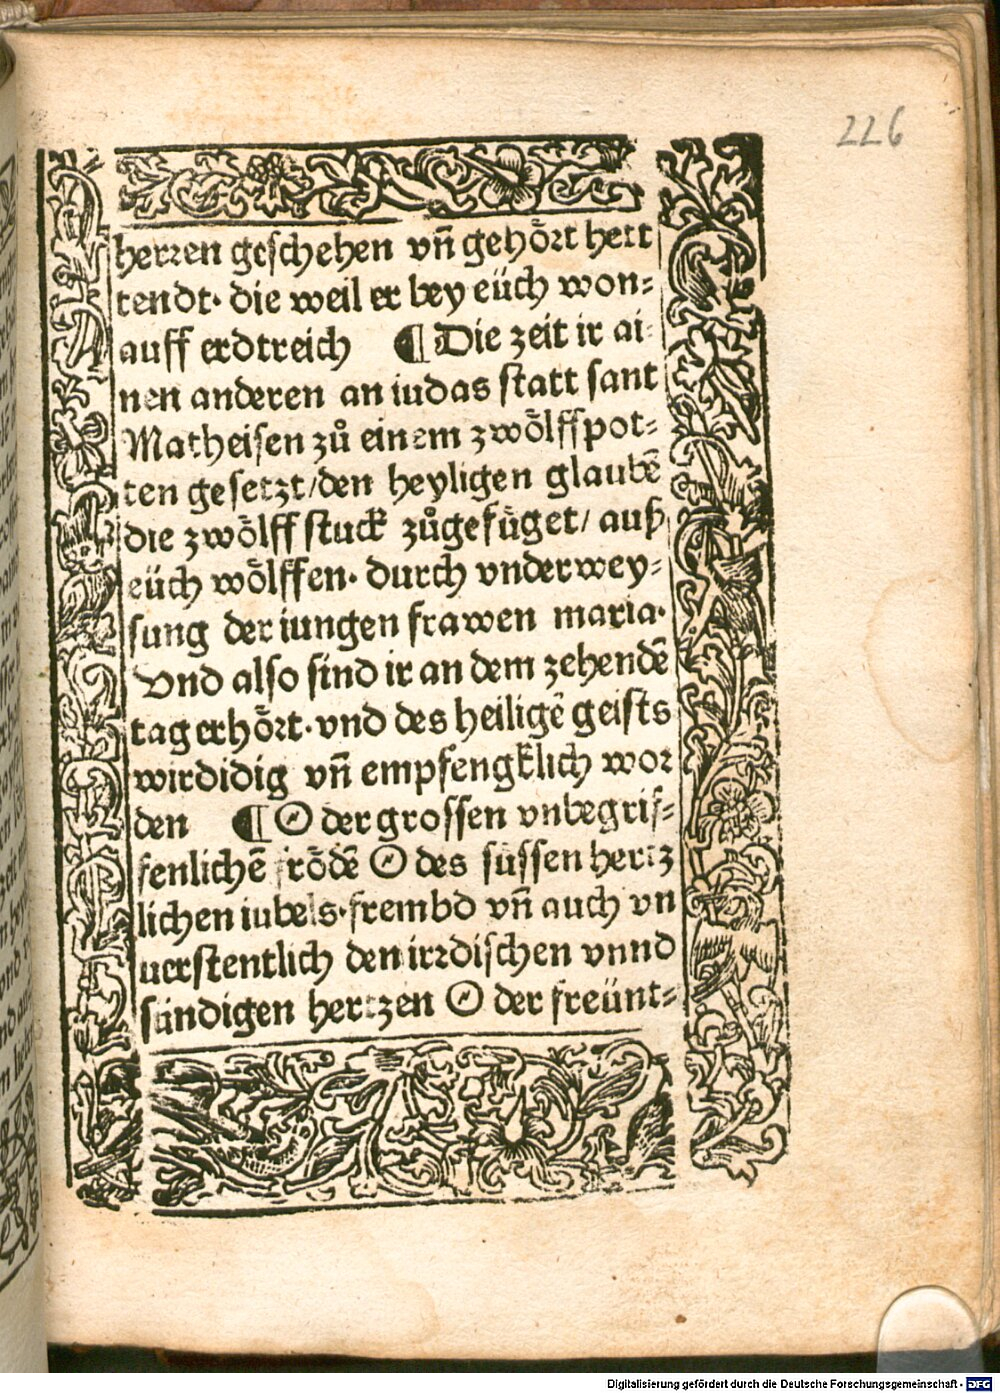 226
herren geschehen vn̄ gehoͤrt hett
tendt· die weil er bey eüch won⸗
auff erdtreich ¶ Die zeit ir ai⸗
nen anderen an iudas statt sant
Matheisen zuͦ einem zwoͤlffpot⸗
ten gesetzt/den heyligen glaubē
die zwoͤlff stuck zuͦgefuͤget/ auß
eüch woͤlffen· durch vnderwey⸗
sung der iungen frawen maria·
Vnd also sind ir an dem zehendē
tag erhoͤrt· vnd des heiligē geists
wirdidig vn̄ empfengklich wor
den ¶ O der grossen vnbegrif⸗
fenlichē froͤdē O des süssen hertz
lichen iubels·frembd vn̄ auch vn
uerstentlich den irrdischen vnnd
sündigen hertzen O der freünt⸗
Digitalisierung gefördert durch die Deutsche Forschungsgemeinschaft - DFG